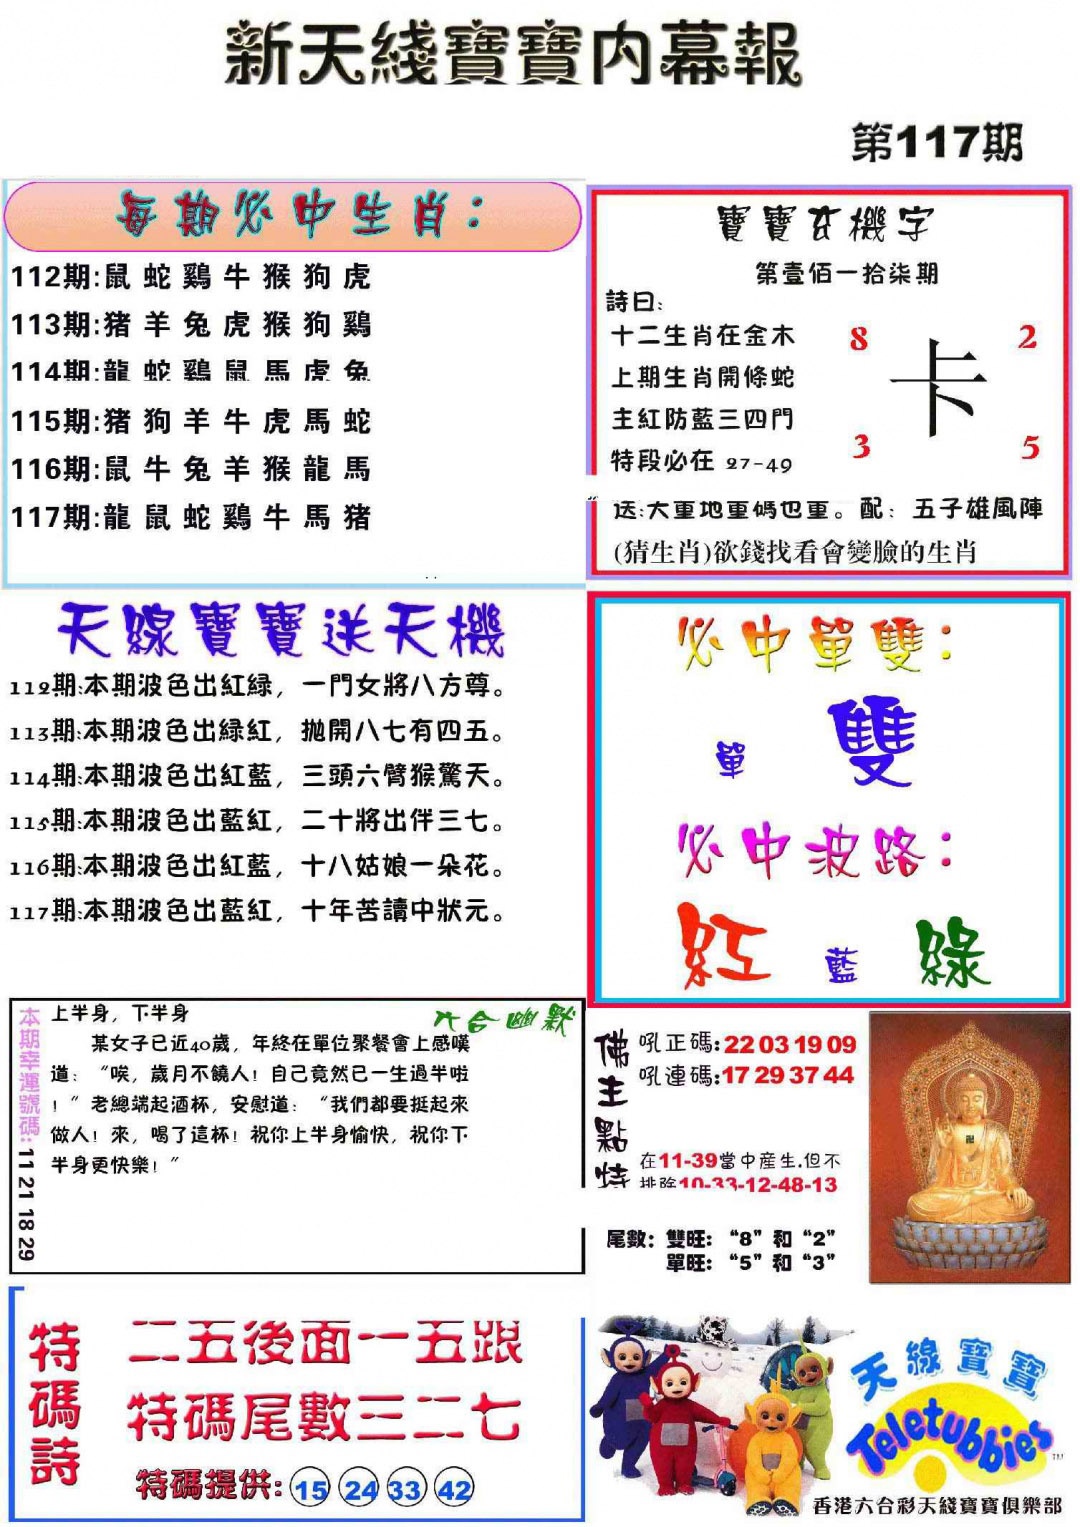 新天綫寶寶内幕報
第117期
每期必中生肖：
112期:鼠 蛇 鷄 牛 猴 狗 虎
113期:猪 羊 兔 虎 猴 狗 鷄
114期:龍 蛇 鷄 鼠 馬 虎 兔
115期:猪 狗 羊 牛 虎 馬 蛇
116期:鼠 牛 兔 羊 猴 龍 馬
117期:龍 鼠 蛇 鷄 牛 馬 猪
寶寶玄機字
第壹佰一拾柒期
詩曰:
十二生肖在金木
上期生肖開條蛇
主紅防藍三四門
特段必在 27-49
8 2
卡
3 5
送:大重地重碼也重。配：五子雄風陣
(猜生肖)欲錢找看會變臉的生肖
天線寶寶送天機
112期:本期波色出紅緑，一門女將八方尊。
113期:本期波色出緑紅，拋開八七有四五。
114期:本期波色出紅藍，三頭六臂猴驚天。
115期:本期波色出藍紅，二十將出伴三七。
116期:本期波色出紅藍，十八姑娘一朵花。
117期:本期波色出藍紅，十年苦讀中狀元。
必中單雙：
單 雙
必中波路：
紅 藍 綠
本期幸運號碼: 11 21 18 29
六合幽默
上半身，下半身
某女子已近40歲，年終在單位聚餐會上感嘆
道：“唉，歲月不饒人！自己竟然已一生過半啦
！”老總端起酒杯，安慰道：“我們都要挺起來
做人！來，喝了這杯！祝你上半身愉快，祝你下
半身更快樂！”
佛主點特
吼正碼:22 03 19 09
吼連碼:17 29 37 44
在11-39當中産生.但不
排除10-33-12-48-13
尾數：雙旺：“8”和“2”
單旺：“5”和“3”
特碼詩
二五後面一五跟
特碼尾數三二七
特碼提供: 15 24 33 42
天線寶寶
Teletubbies
TM
香港六合彩天綫寶寶俱樂部